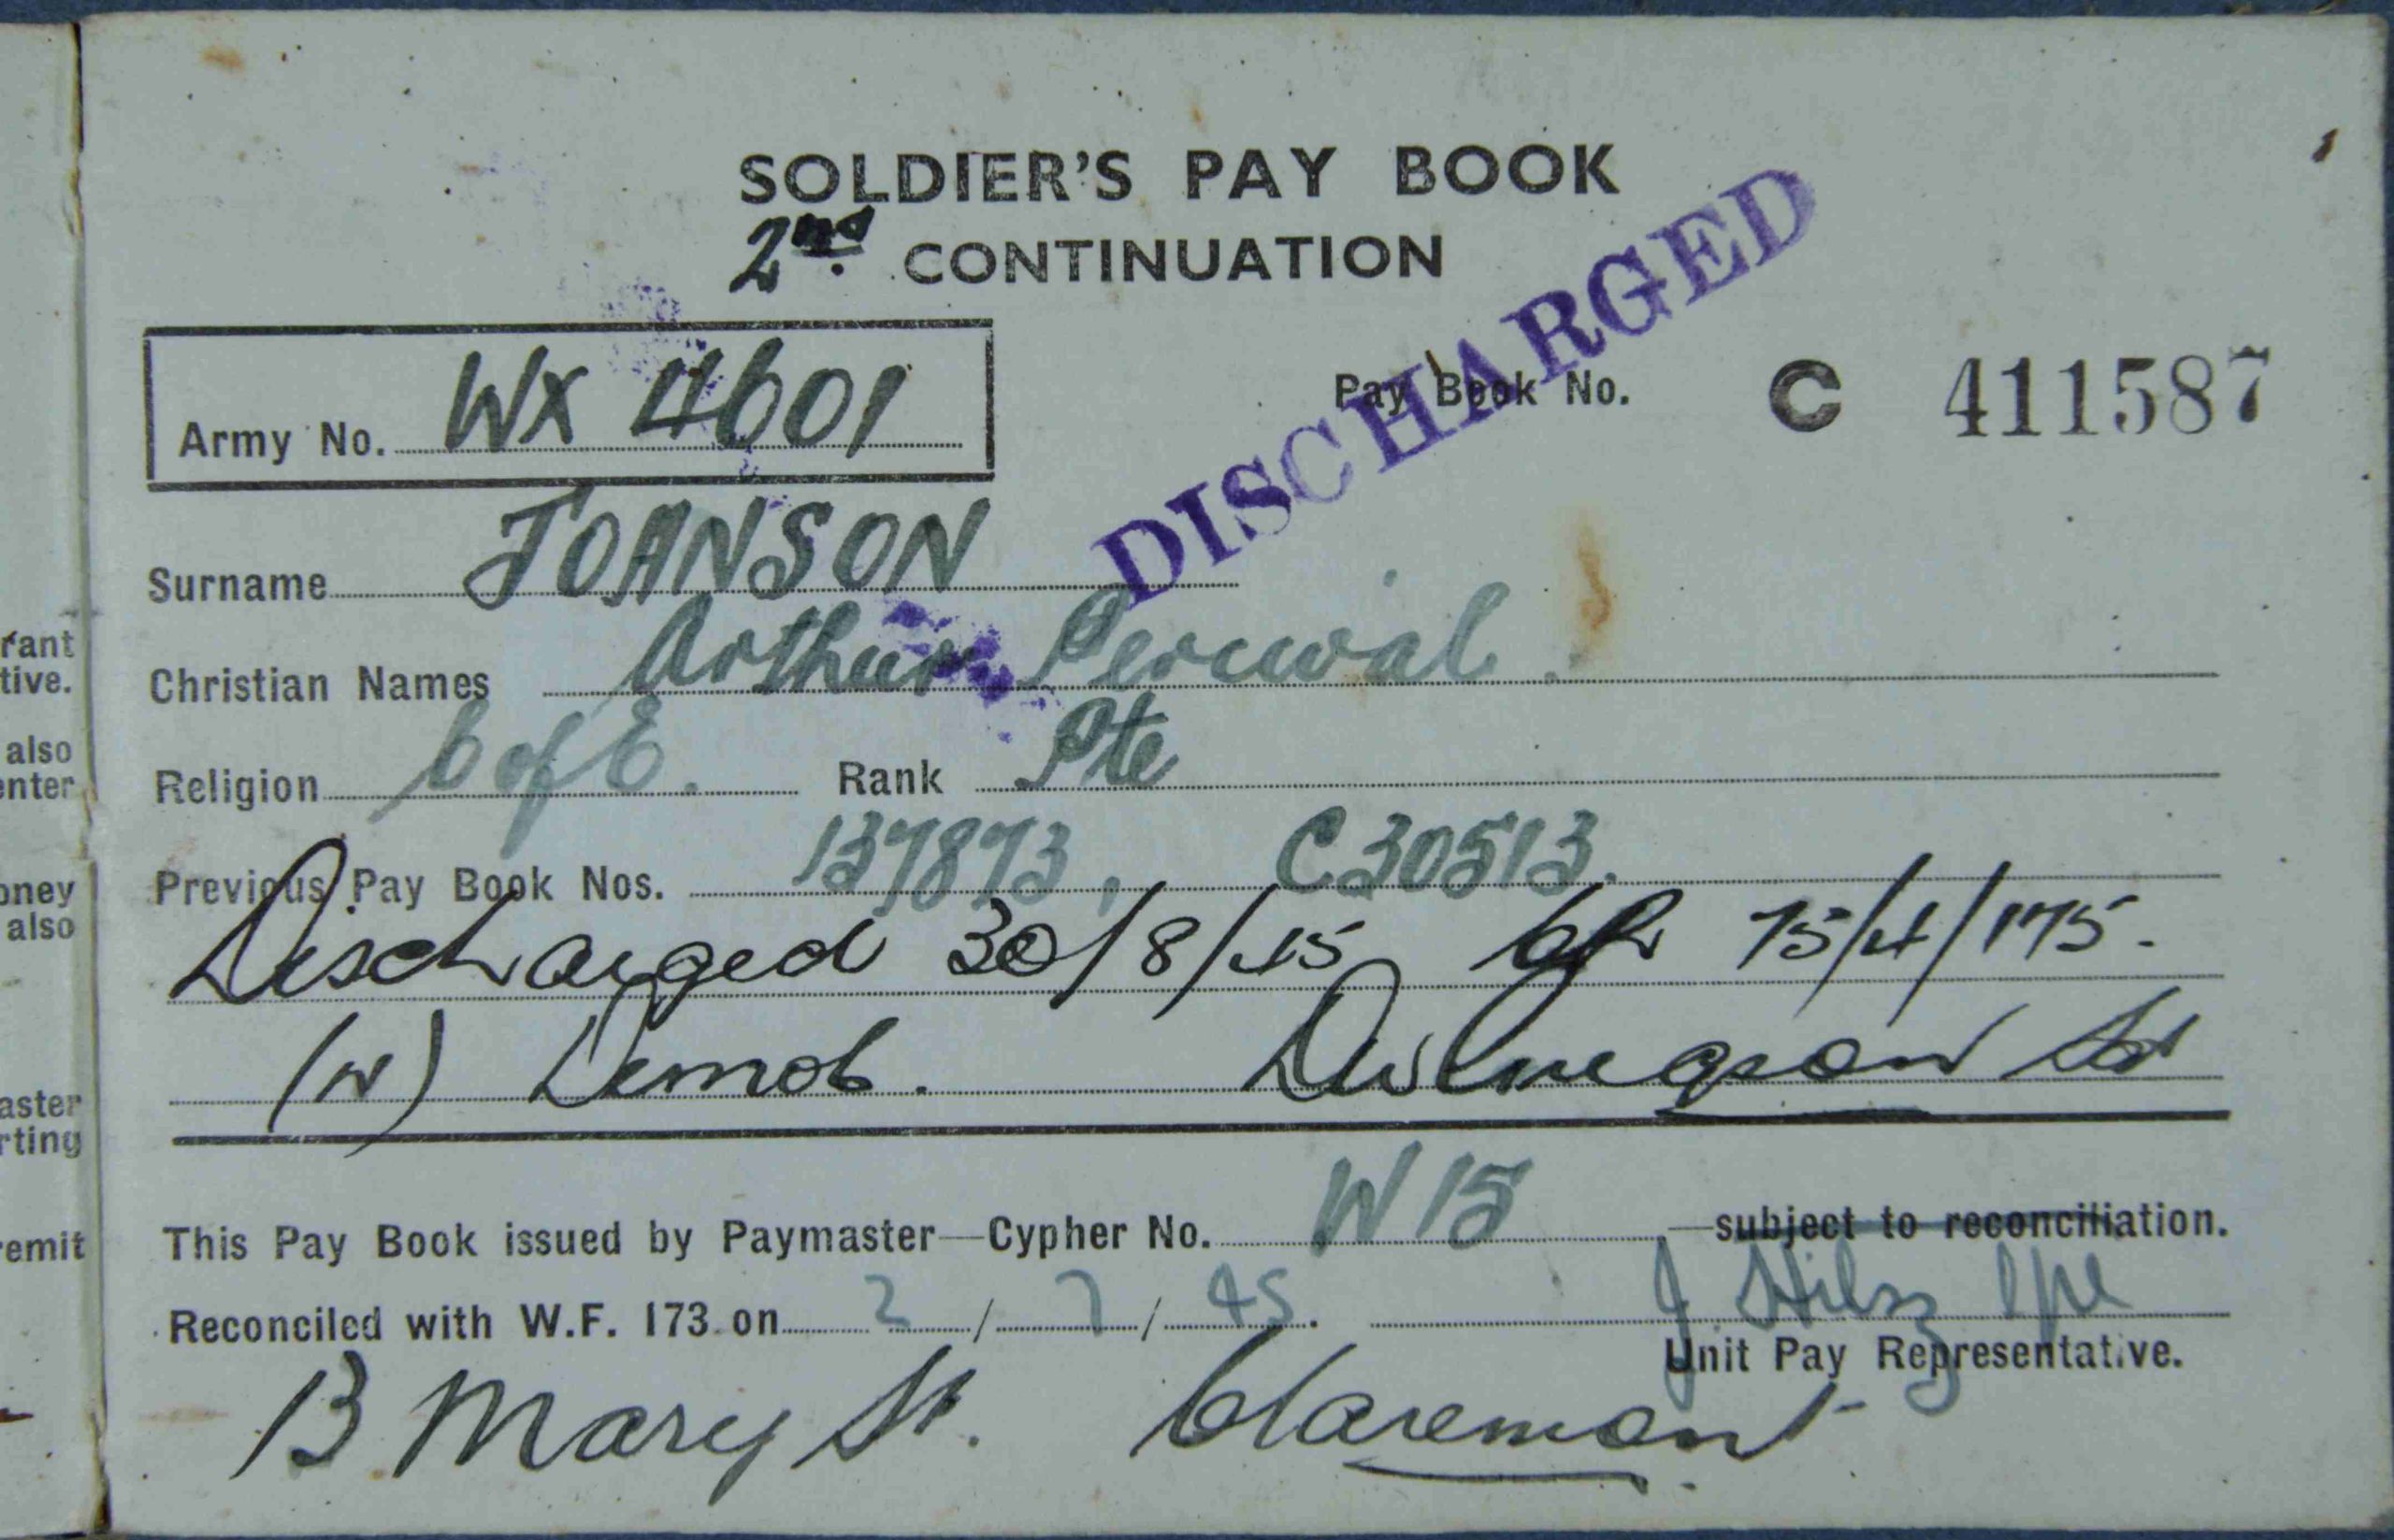 SOLDIER'S PAY BOOK
2nd. CONTINUATION
DISCHARGED
Army No. WX 4601
Pay Book No. C 411587
Surname JOHNSON
Christian Names Arthur Percival.
Religion C of E. Rank Pte
Previous Pay Book Nos. 137873, C30513.
Discharged 30/8/45 75/4/175.
(N) Demob.
This Pay Book issued by Paymaster—Cypher No. W 15 —subject to reconciliation.
Reconciled with W.F. 173 on 2 / 7 / 45.
Unit Pay Representative.
13 Mary St. Claremont
rant
tive.
also
enter
oney
also
aster
rting
remit